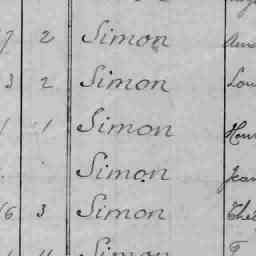 7 2 Simon
3 2 Simon Lou
1 1 Simon Hen
Simon Jean
16 3 Simon
Simon